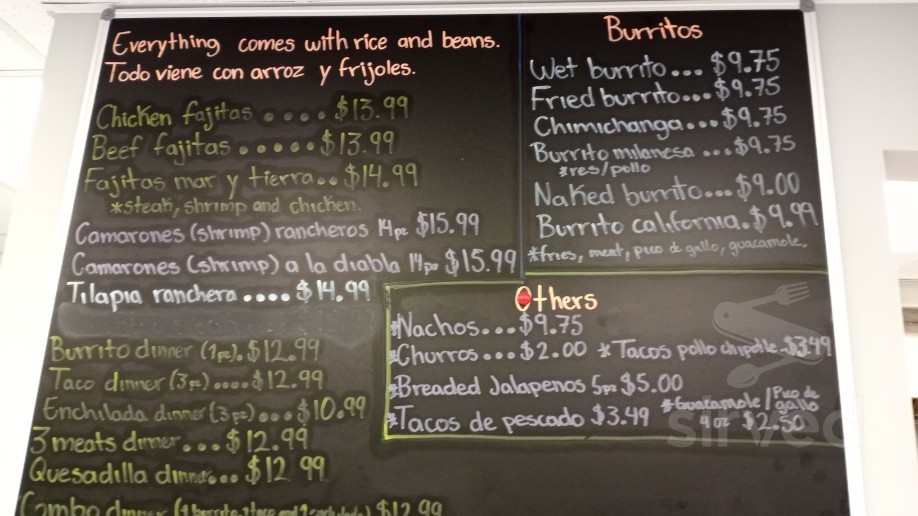 Everything comes with rice and beans.
Todo viene con arroz y frijoles.
Chicken fajitas .... $13.99
Beef fajitas ..... $13.99
Fajitas mar y tierra.. $14.99
*steak, shrimp and chicken.
Camarones (shrimp) rancheros 14pz $15.99
Camarones (shrimp) a la diabla 14pz $15.99
Tilapia ranchera .... $14.99
Burrito dinner (1pz). $12.99
Taco dinner (3pz) .... $12.99
Enchilada dinner (3pz)... $10.99
3 meats dinner... $12.99
Quesadilla dinner... $12.99
Combo dinner (1 burrito, 1 taco and 1 enchilada) $12.99
Burritos
Wet burrito... $9.75
Fried burrito... $9.75
Chimichanga... $9.75
Burrito milanesa ... $9.75
*res/pollo
Naked burrito... $9.00
Burrito california. $9.99
*fries, meat, pico de gallo, guacamole.
Others
*Nachos... $9.75
*Churros... $2.00 *Tacos pollo chipotle.. $3.49
*Breaded Jalapenos 5pz $5.00
*Tacos de pescado $3.49 *Guacamole / Pico de gallo
4 oz $2.50
sirved